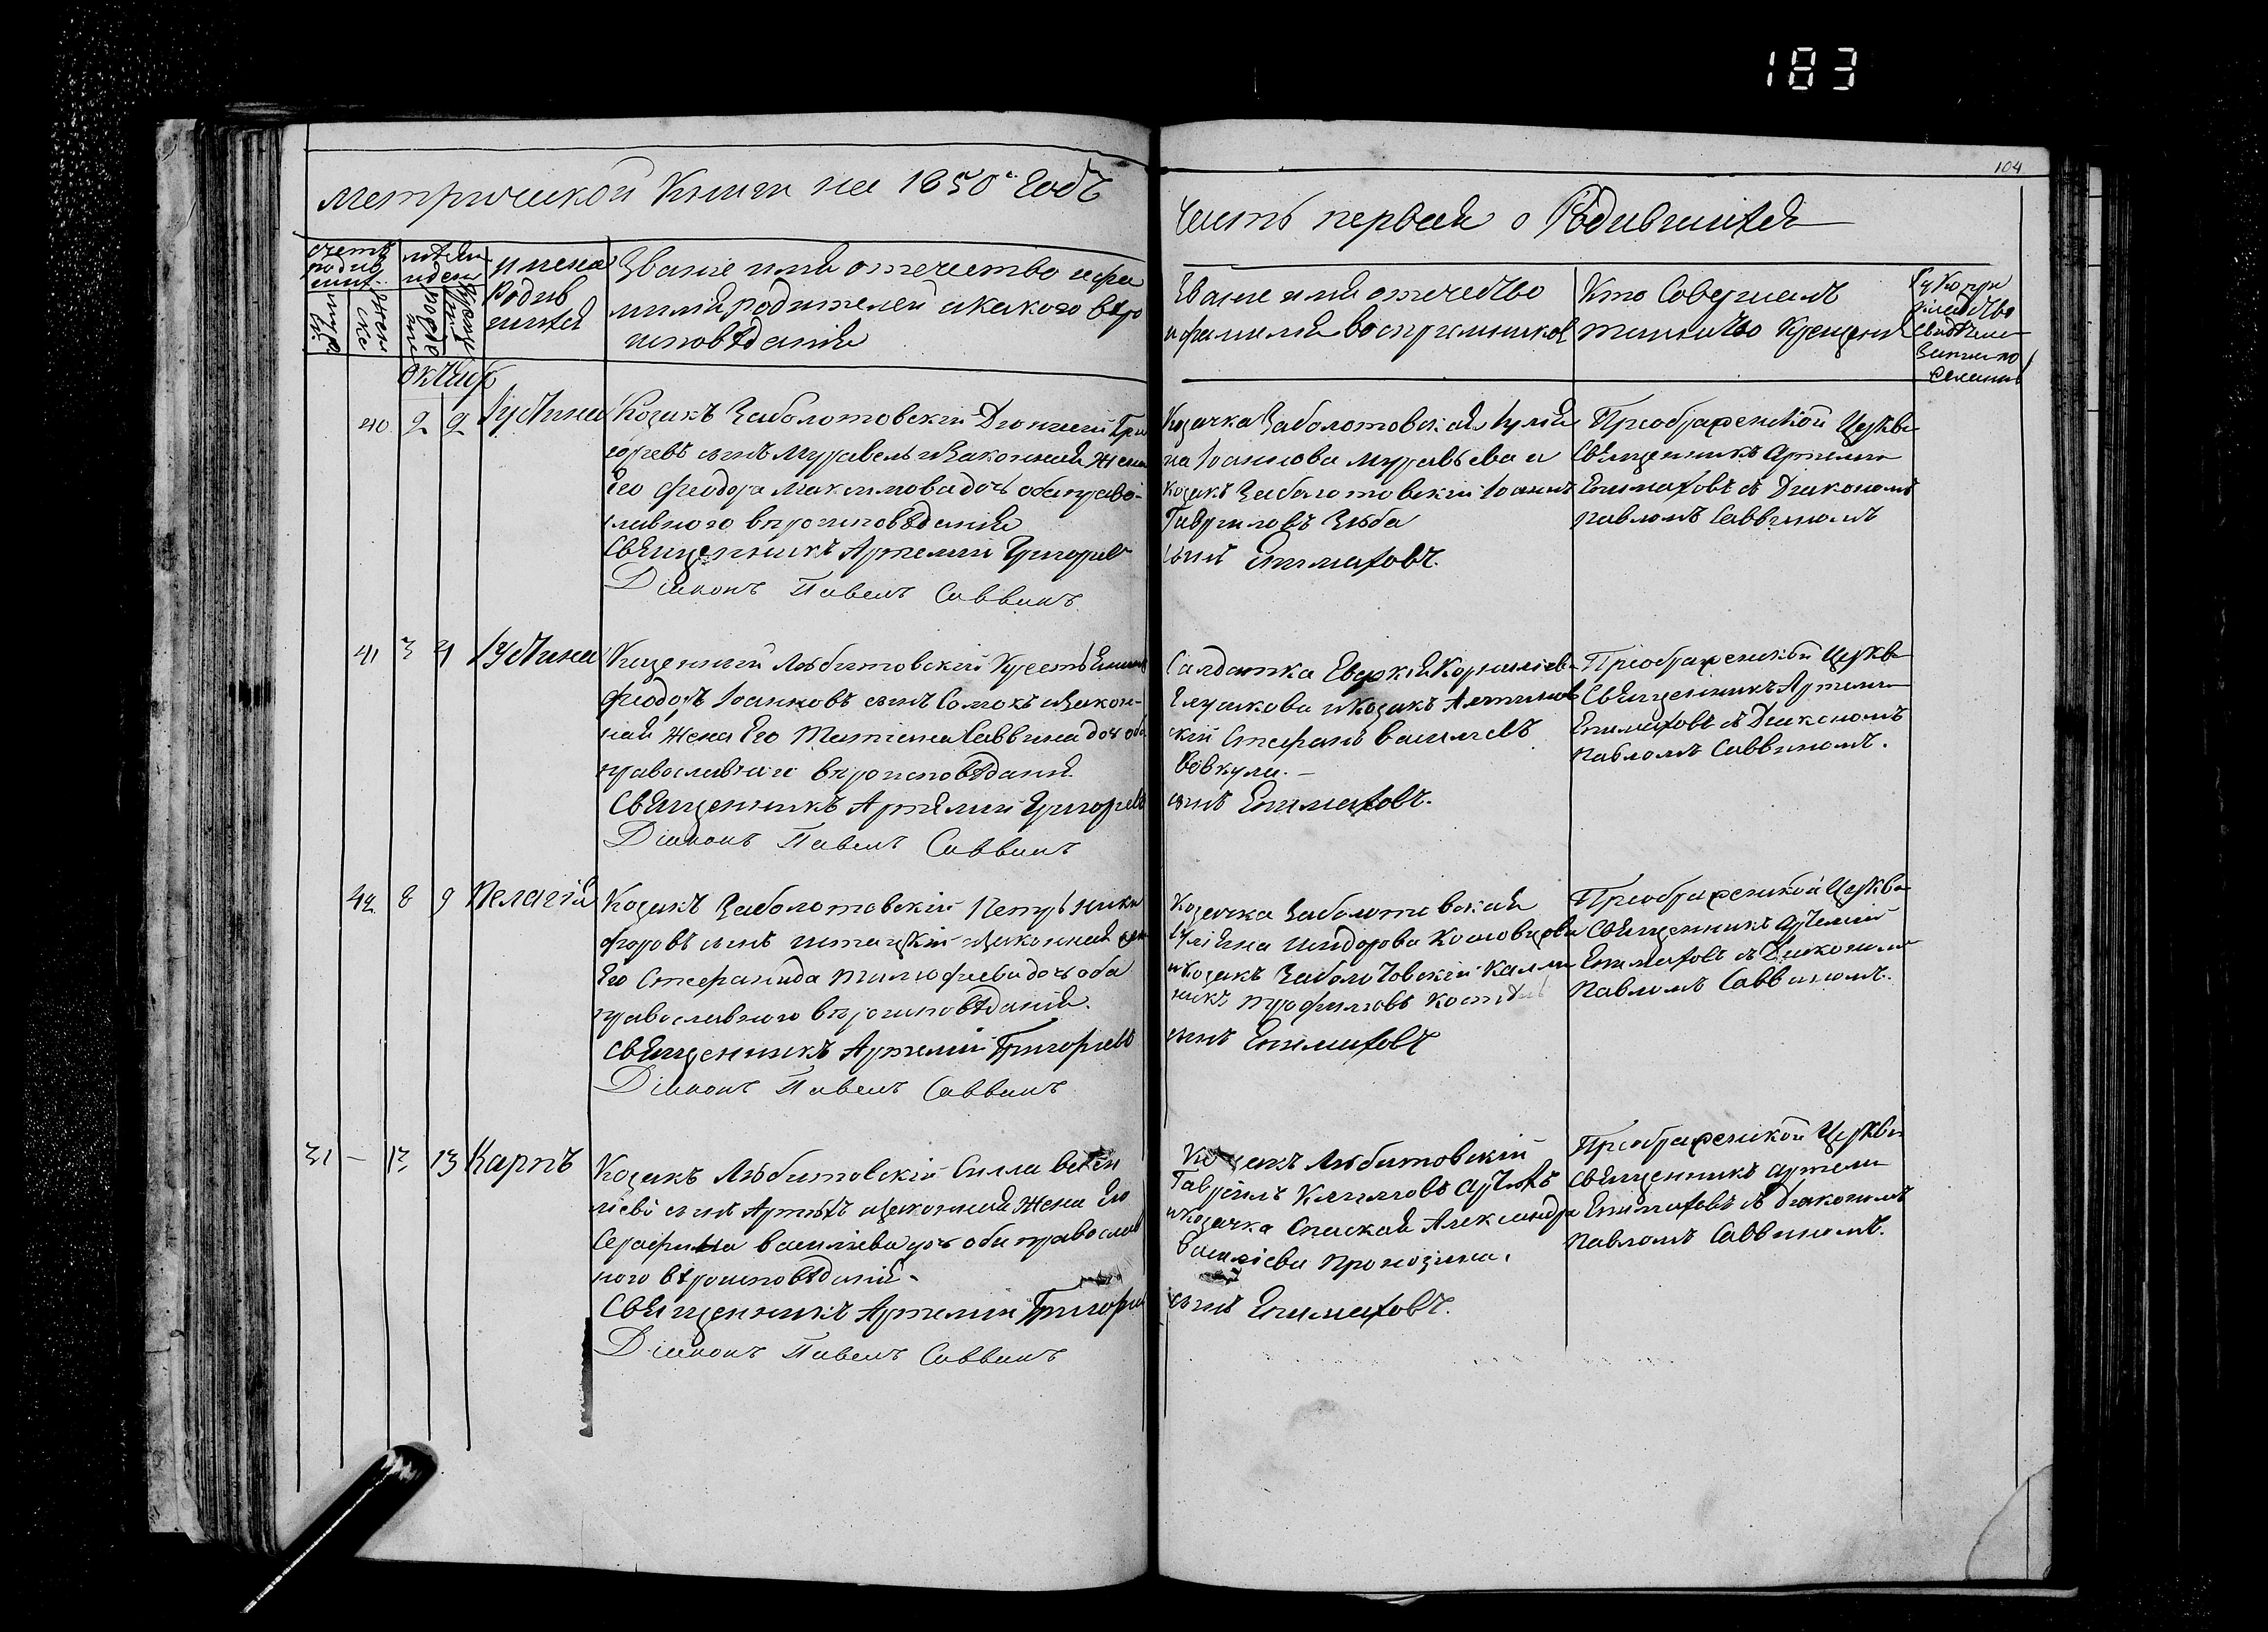 183
104
метрической Книги на 1850й Годъ
Часть первая о Родившихся
счетъ родив шихс.
муже ск.
женс ск.
рожде ния
креще ния
имена Родив шихся
Званіе имя отечество и фа
милія родителей и какого веро
исповѣданія
Званіе имя отечество
и фамилія воспріимниковъ
Кто Совершалъ
таинство Крещенія
Рукопри
кладство
свидѣтелей
записи по
желанію
Октябр
40 2 2 Іустина
Козакъ Заболотовскій Діонисій Гри
горіевъ сынъ Муравель и Законная Жена
Его Феодора Максимова дочь оба право-
славного вероисповѣданія
Священникъ Артемій Григоріев
Діаконъ Павелъ Саввинъ
Козачка Заболотовская Іуліа
на Іоаннова Муравьева и
козакъ Заболотовскій Іоаннъ
Гавриловъ Зюба
сынъ Епимаховъ.
Преображенской Церкви
Священникъ Артемій
Епимаховъ съ Диакономъ
павломъ Саввиномъ
41 3 4 Іустина
Казенный Любитовскій Крестьянинъ
Феодоръ Іоанновъ сынъ Сомохъ и Закон-
ная Жена Его Татіана Саввина доч оба
православного вероисповѣданія.
Священникъ Артемій Григоріев
Діаконъ Павелъ Саввинъ
Салдатка Евдокія Корниліева
Глушкова и Козакъ
скій Стефанъ василіевъ
Вовкула. -
сынъ Епимаховъ.
Преображенской Церкви
Священникъ Артемій
Епимаховъ съ Диакономъ
павломъ Саввиномъ.
42 8 9 Пелагія
Козакъ Заболотовскій Петръ Ники
форовъ сынъ и Законная
Его Стефанида Тимофиева доч оба
православного вероисповѣданія.
Священникъ Артемій Григоріев
Діаконъ Павелъ Саввинъ
Козачка Заболотовская
Іуліяна Исидорова
и Козакъ Заболотовскій Калли
никъ Трофимовъ
сынъ Епимаховъ
Преображенской Церкви
Священникъ Артемій
Епимаховъ съ Диакономъ
Павломъ Саввиномъ.
31 - 13 13 Карпъ
Козакъ Любитовскій Силла васи
ліевъ сынъ и законная Жена Его
Серафима василіева доч оба православ
ного вероисповѣданія.
Священникъ Артемій Григоріе
Діаконъ Павелъ Саввинъ
Козакъ Любитовскій
Гавріилъ Климовъ
и козачка Спаская Александра
Василіева Прокозина.
сынъ Епимаховъ.
Преображенской Церкви
Священникъ Артеми
Епимаховъ съ Диакономъ
Павломъ Саввиномъ.